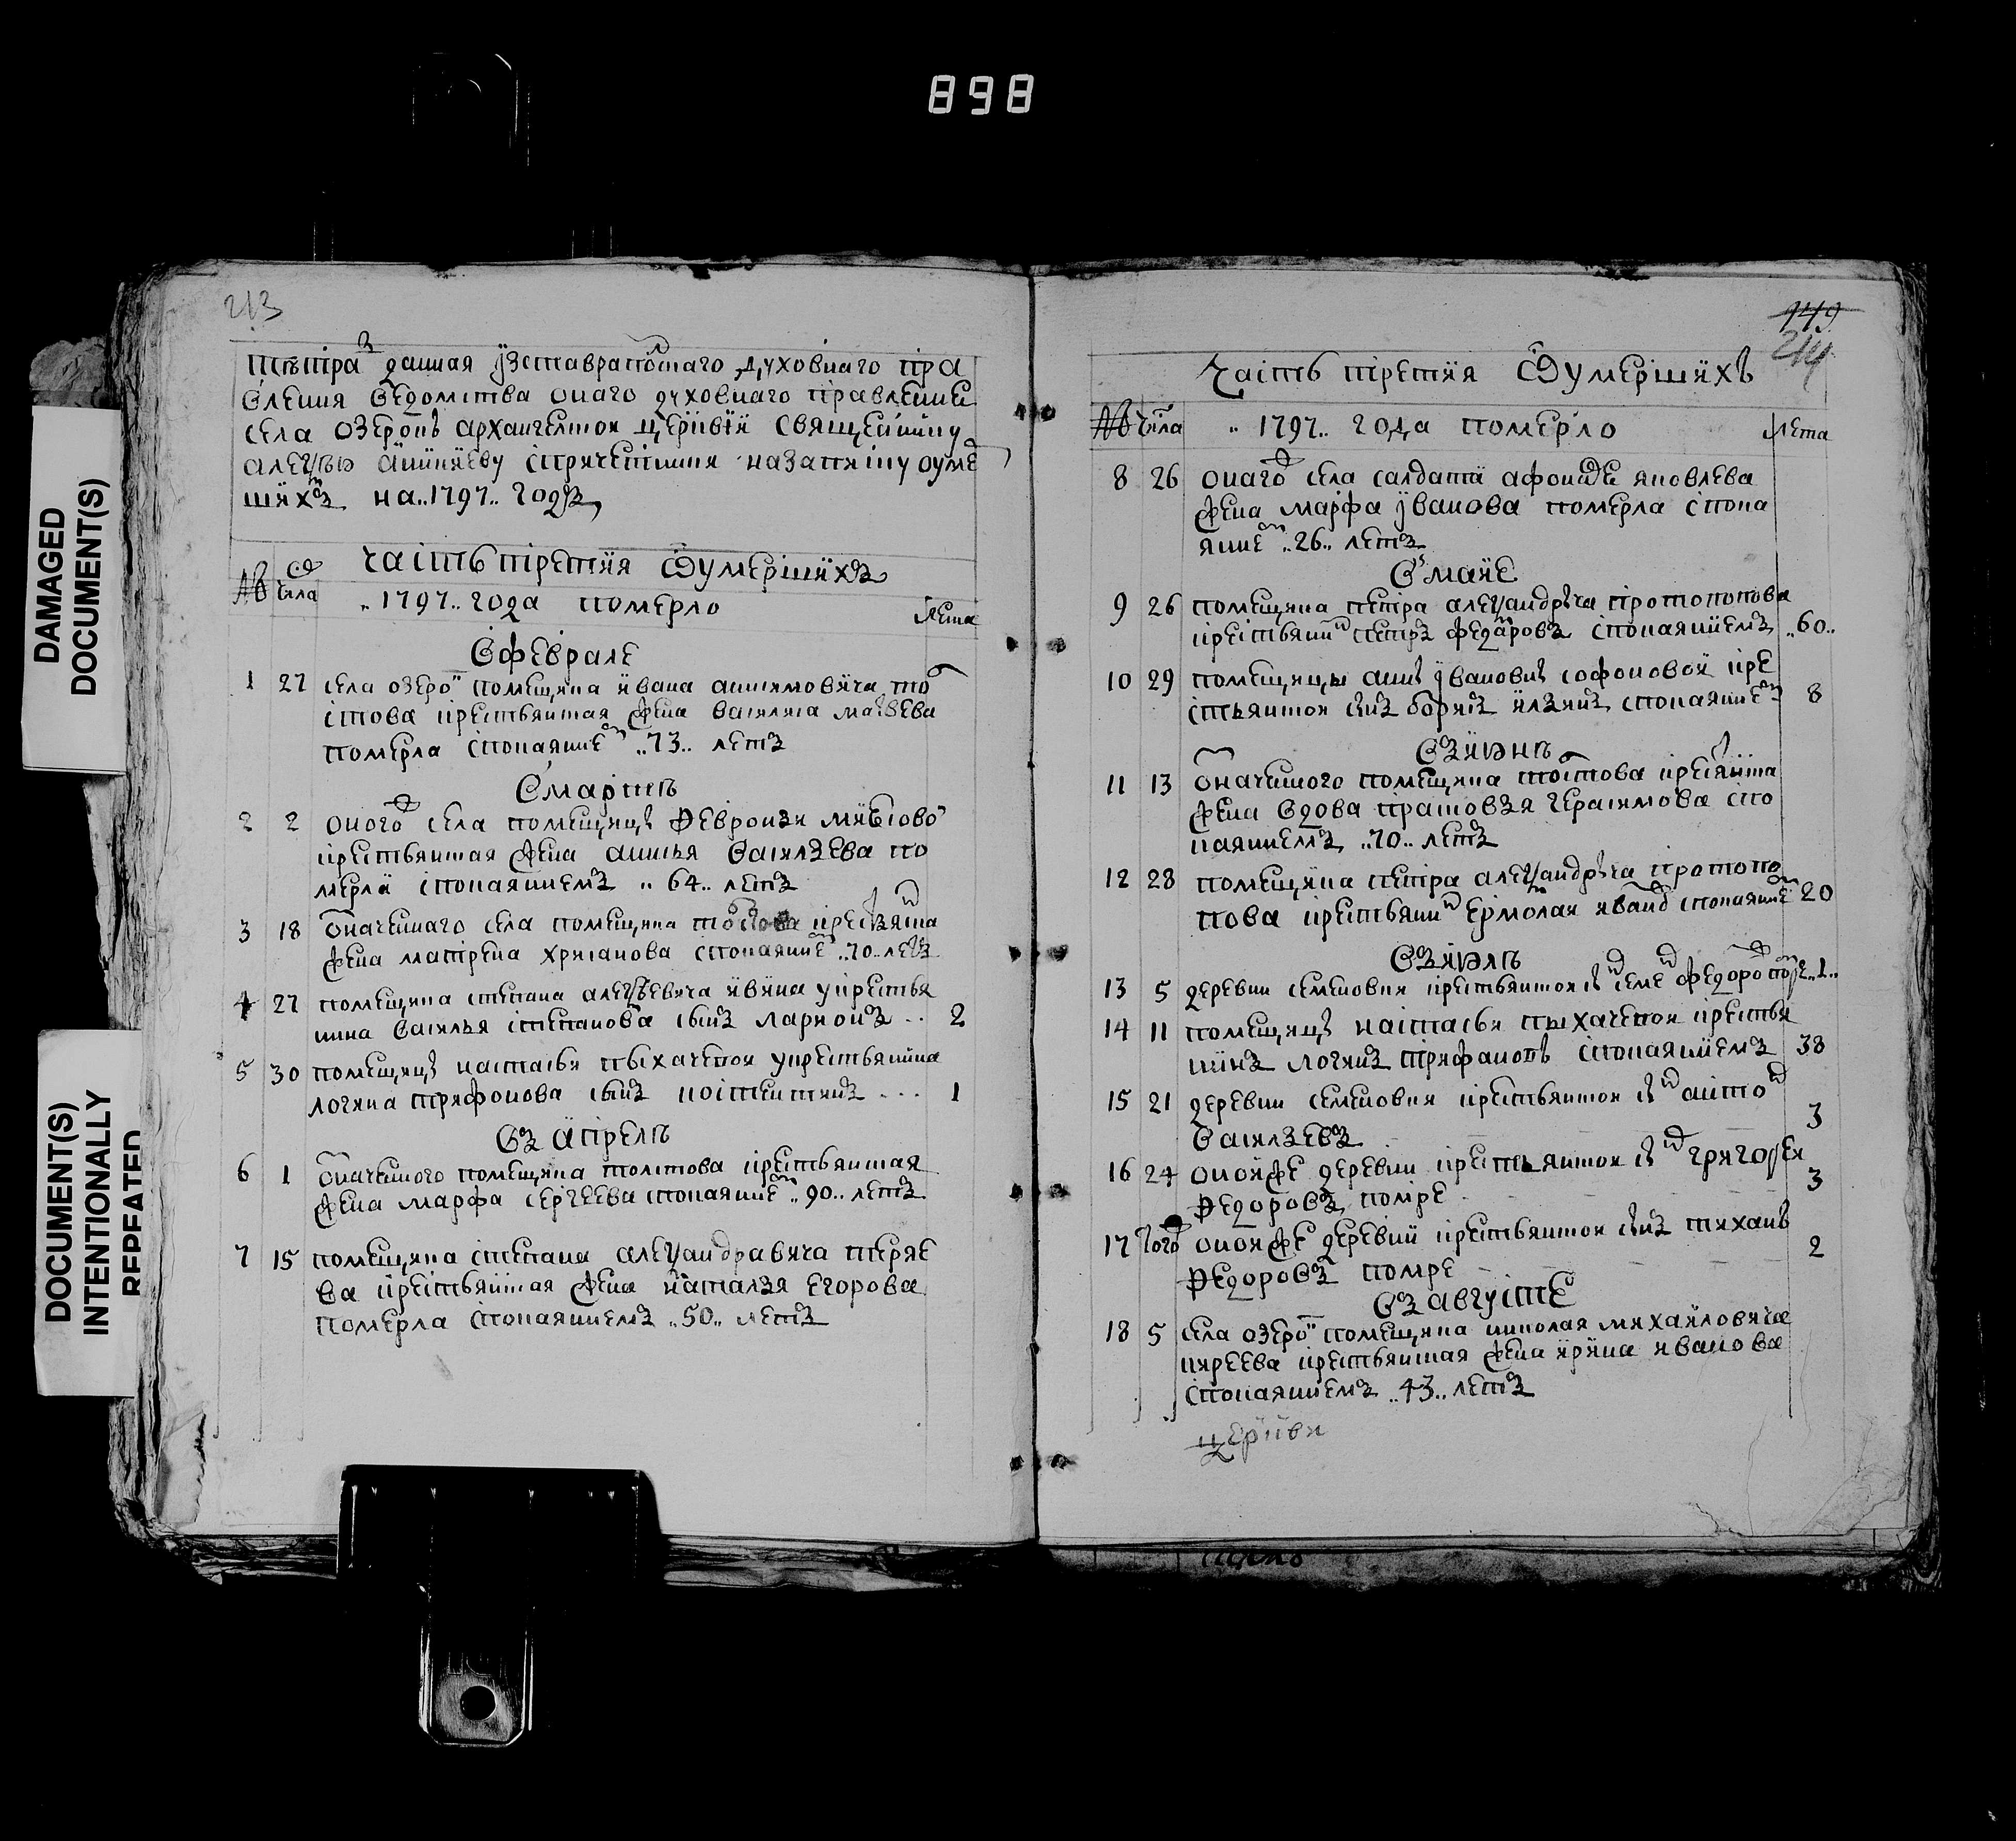 898
DAMAGED
DOCUMENT(S)
DOCUMENT(S)
INTENTIONALLY
REPEATED
213
тетрадь данная изставрапольскаго духовнаго пра
вления ведомства онаго духовнаго правление
села озерокъ архангелской церкви священнику
алексѣю аникиеву
шихъ на 1797 годъ
часть третия Оумершихъ
№ числа 1797 года померло лета
Вфеврале
1 27 села озерокъ помещика ивана толстова крестьянская жена василиса матвеева
померла спокаянием 73 летъ
Вмартѣ
2 2 оного села помещицы Февронии
крестьянская жена анисья Василева по
мерла спокаяниемъ 64 летъ
3 18 означеннаго села помещика толстова
жена матрена спокаяние 70 летъ
4 27 помещика степана алексеевича укрестья
нина Василья степанова сынъ ларионъ 2
5 30 помещицы настасьи пыхачевой укрестьянина
логина трифонова сынъ костентинъ 1
Въ апрелѣ
6 1 означенного помещика толстова крестьянская
жена марфа сергеева спокаяние 90 летъ
7 15 помещика степана александравича
ва крестьянская жена наталья егорова
померла спокаяниемъ 50 летъ
149
214
часть третия Оумершихъ
№ числа 1797 года померло лета
8 26 онаго села салдата яковлева
жена марфа иванова померла спока
яние 26 летъ
Вмаие
9 26 помещика петра александрыча протопопова
крестьянин петръ федаровъ спокаяниемъ 60
10 29 помещицы анны ивановны софоновой кре
стьянской сынъ борисъ спокаяние 8
Въ июнѣ
11 13 означенного помещика толстова
жена вдова прасковья герасимова спо
каяниемъ 70 летъ
12 28 помещика петра александрыча протопо
пова крестьянин ермолай иванов спокаяние 20
Въ июлѣ
13 5 деревни семеновки крестьянской семен федоров 1
14 11 помещицы настасьи пыхачевой крестья
нинъ логинъ трифановъ спокаяниемъ 38
15 21 деревни семеновки крестьянской антон
Василевъ 3
16 24 онойже деревни крестьянской григорей
Федоровъ помре 3
17 того онойже деревни крестьянской сынъ тиханъ
Федоровъ помре 2
Въ августе
18 5 села озерокъ помещика николая михайловича
киреева крестьянская жена ирина иванова
спокаяниемъ 43 летъ
церкви